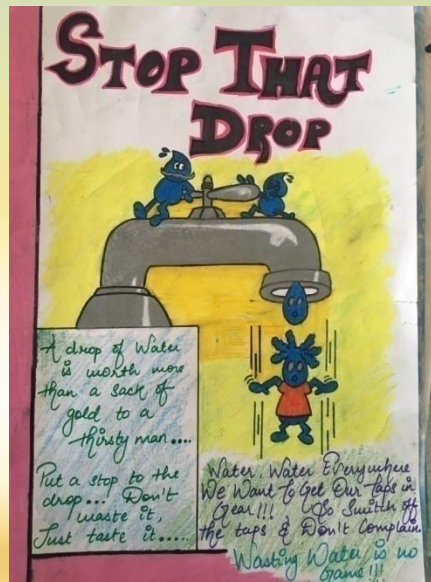 STOP THAT
DROP
A drop of Water
is worth more
than a sack of
gold to a
thirsty man....
Put a stop to the
drop... Don't
waste it,
Just taste it.....
Water, Water Everywhere
We Want To Get Our Taps in
Gear!!! So Switch off
the taps & Don't Complain.
Wasting Water is no
Game!!!